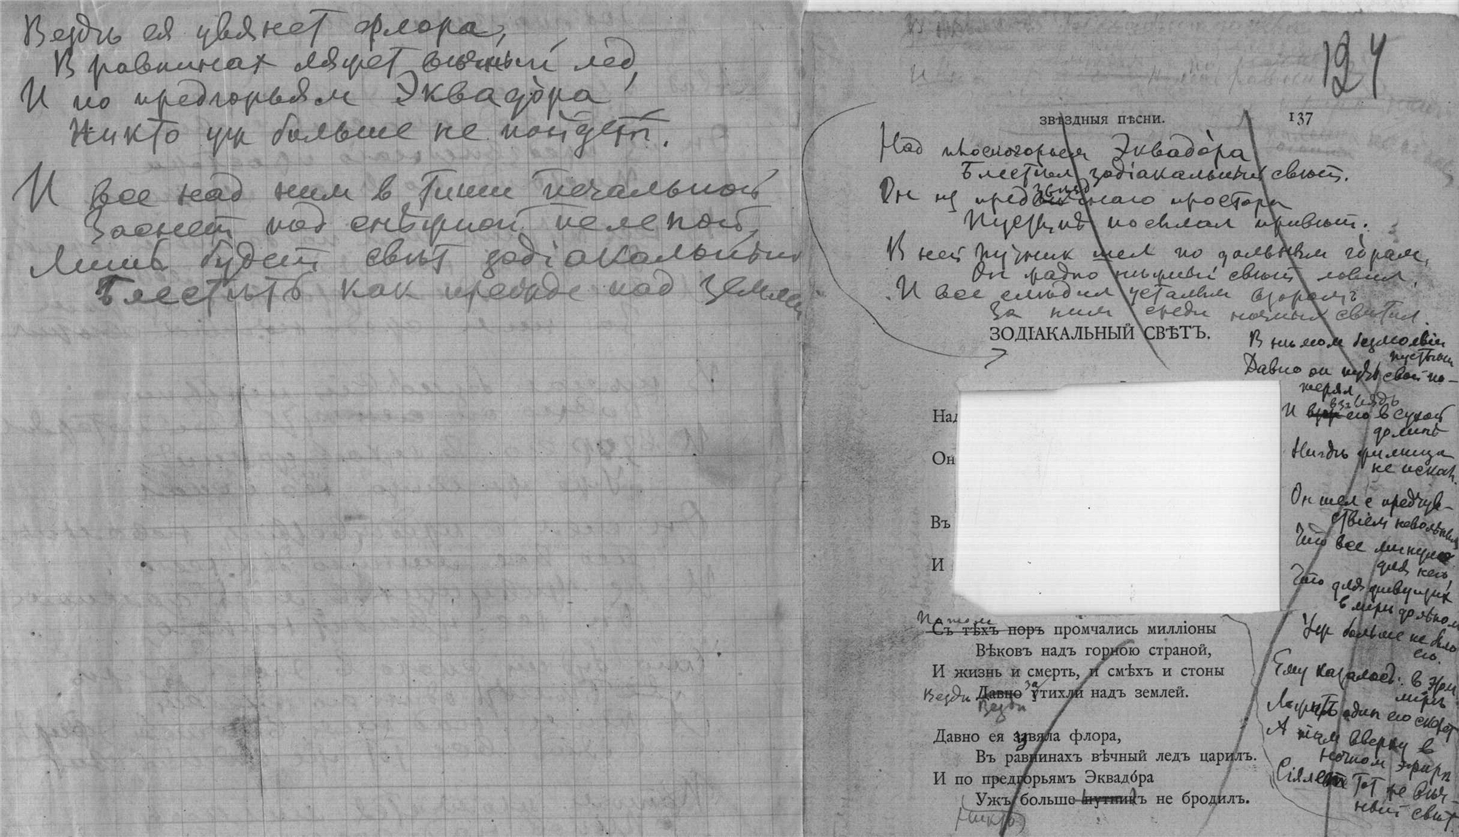 Вездѣ ея увянет флора,
В равнинах ляжет вѣчный лед,
И по предгорьям Эквадо́ра
Никто уж больше не пойдет.
И все над ним в тиши печальной
Заснет под снѣжной пеленой,
Лишь будет свѣт зодіакальный
Блестѣть как прежде над землей
124
ЗВѢЗДНЫЯ ПѢСНИ.
137
Над плоскогорьем Эквадо́ра
Блестѣл зодіакальный свѣт.
Он из предзвѣзднаго простора
Пустынѣ посылал привѣт.
В ней путник шел по дальним го́рам,
Он жадно нѣжный свѣт ловил,
И все слѣдил усталым взором
За ним среди ночных свѣтил.
ЗОДІАКАЛЬНЫЙ СВѢТЪ.
Над
Он
Въ
И
Потом
Съ тѣхъ поръ промчались милліоны
Вѣковъ надъ горною страной,
И жизнь и смерть, и смѣхъ и стоны
Вездѣ Давно утихли надъ землей.
за
Вездѣ
Давно ея увяла флора,
Въ равнинахъ вѣчный ледъ царилъ.
И по предгорьямъ Эквадо́ра
Ужъ больше путникъ не бродилъ.
Никто
В нѣмом безмолвіи
пустыни
Давно он путь свой по-
терял
И взгляд
его в сухой
долинѣ
Нигдѣ жилища
не искал.
Он шел с предчув-
ствіем невольным
Что все минуло
для него,
Что для живущих
в мірѣ дольном
Уж больше не было
его.
Ему казалось: в
мірѣ
один его скорб
А там вверху в
ночном эфирѣ
Сіяле тот же вѣч-
ный свѣт.